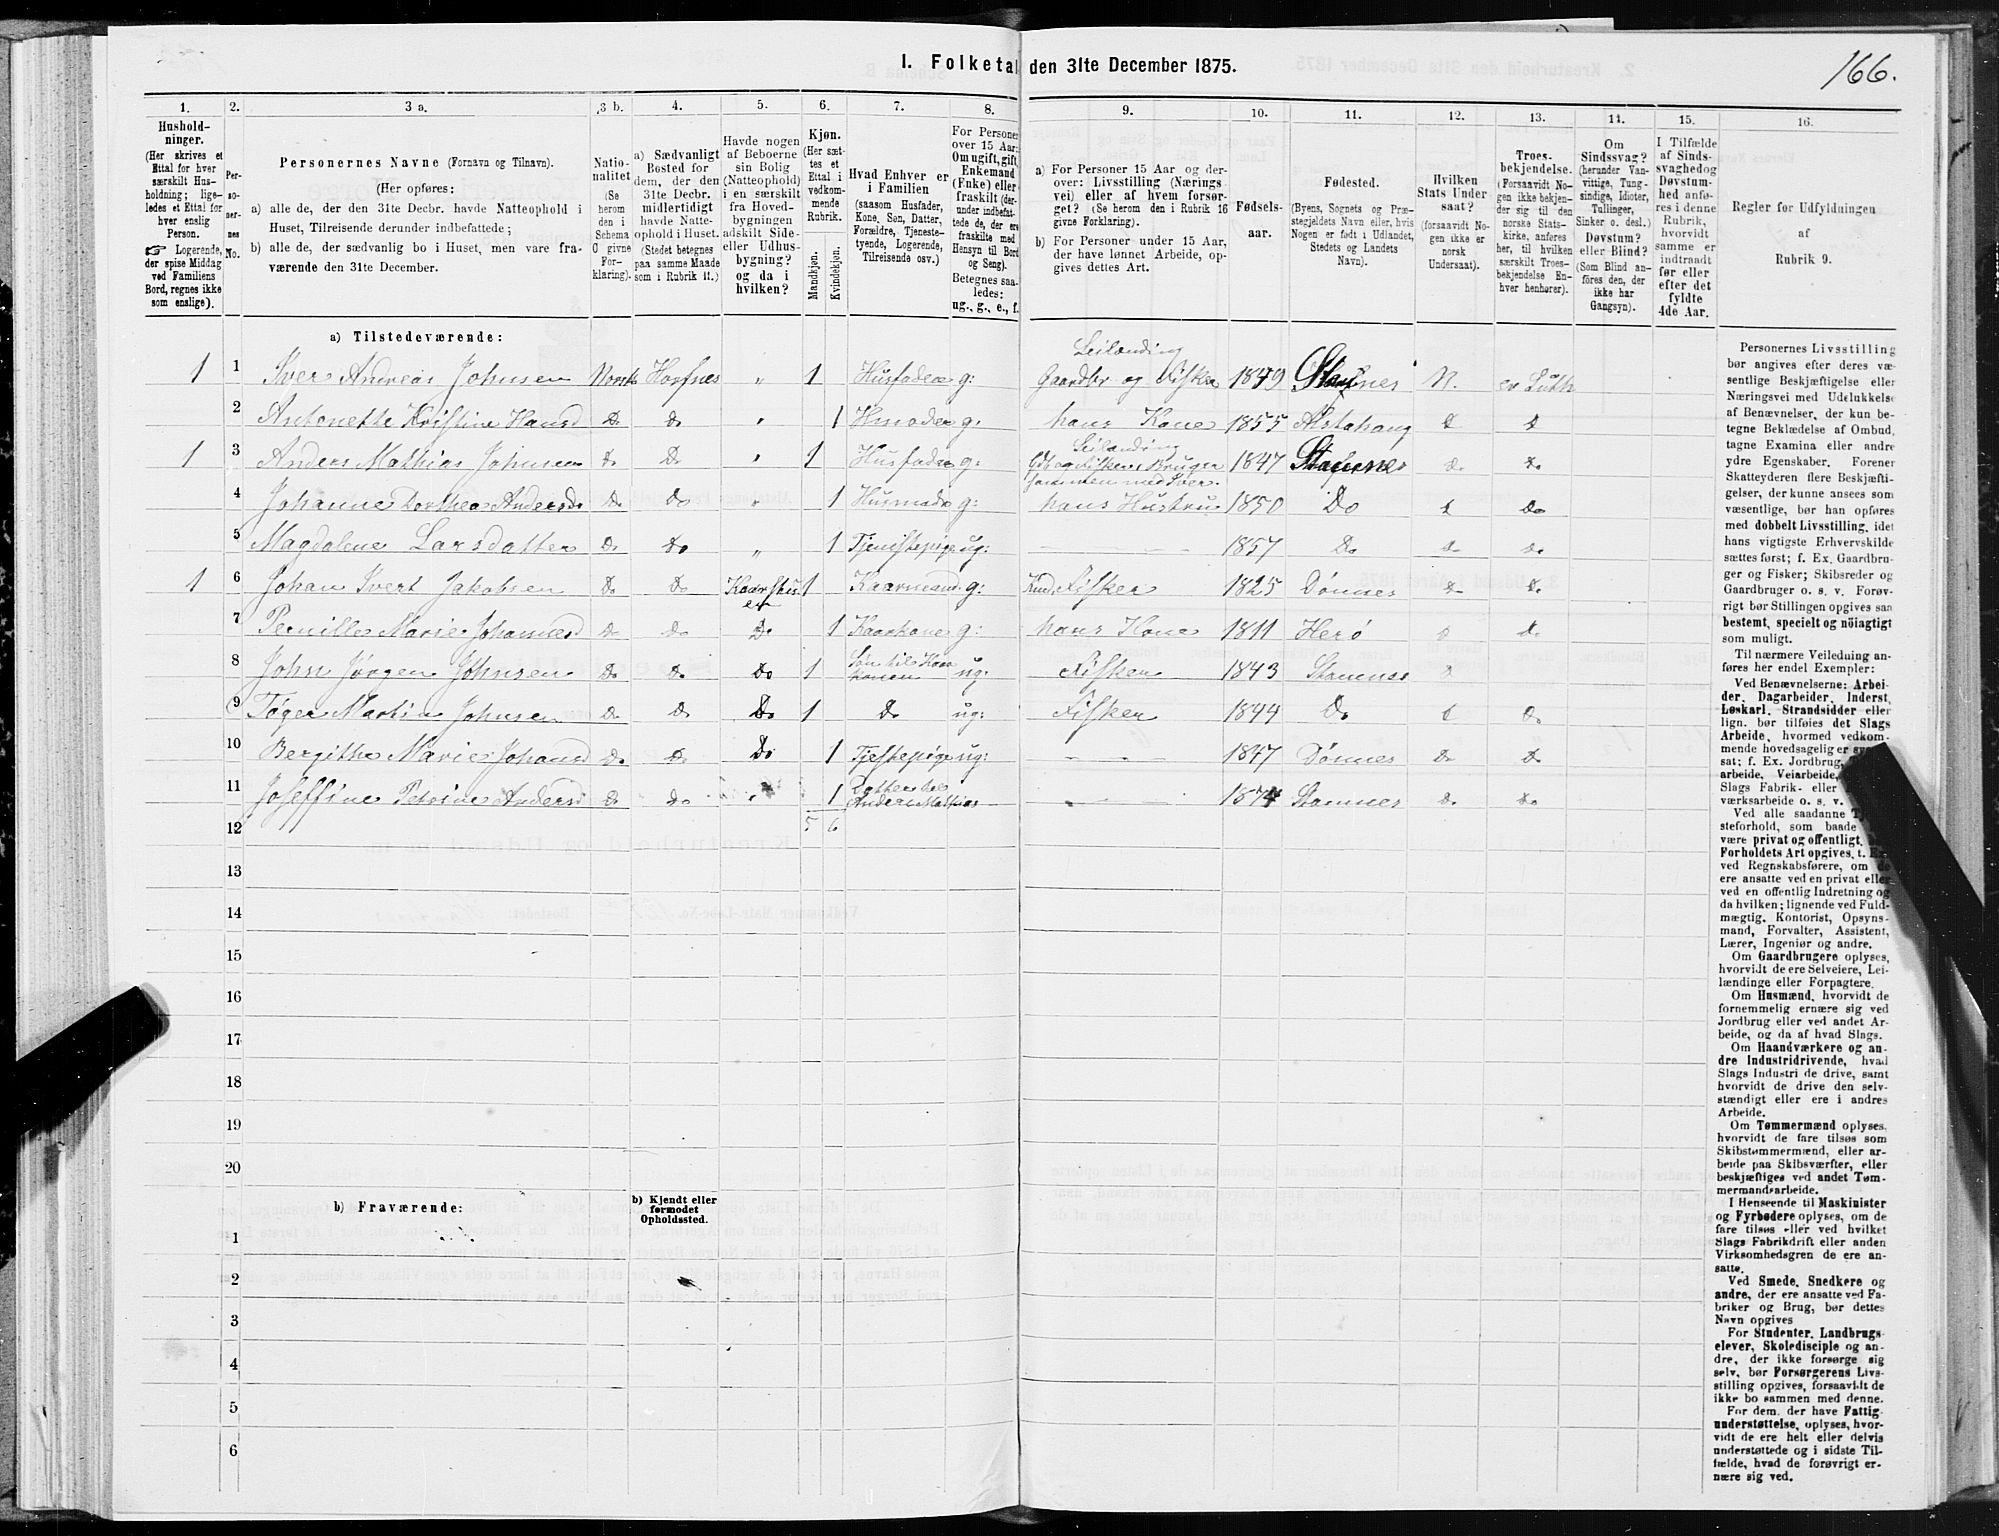 166.
I. Folketal den 31te December 1875.
1. 2. 3 a. 3 b. 4. 5. 6. 7. 8. 9. 10. 11. 12. 13. 14. 15. 16.
Hushold-
ninger.
(Her skrives et
Ettal for hver
særskilt Hus-
holdning; lige-
ledes et Ettal for
hver enslig
Person.
☞ Logerende,
der spise Middag
ved Familiens
Bord, regnes ikke
som enslige).
Per-
so-
ner-
nes
No.
Personernes Navne (Fornavn og Tilnavn).
(Her opføres:
a) alle de, der den 31te Decbr. havde Natteophold i
Huset, Tilreisende derunder indbefattede;
b) alle de, der sædvanlig bo i Huset, men vare fra-
værende den 31te December.
Natio-
nalitet
(Se
herom
den i
Schema
O givne
For-
klaring).
a) Sædvanligt
Bosted for
dem, der den
31te Decbr.
midlertidigt
havde Natte-
ophold i Huset.
(Stedet betegnes
paa samme Maade
som i Rubrik 11.)
Havde nogen
af Beboerne
sin Bolig
(Natteophold)
i en særskilt
fra Hoved-
bygningen
adskilt Side-
eller Udhus-
bygning?
og da i
hvilken?
Kjøn.
(Her sæt-
tes et
Ettal i
vedkom-
mende
Rubrik.
Mandkjøn.
Kvindekjøn.
Hvad Enhver er
i Familien
(saasom Husfader,
Kone, Søn, Datter,
Forældre, Tjeneste-
tyende, Logerende,
Tilreisende osv.)
For Personer
over 15 Aar:
Om ugift, gift,
Enkemand
(Enke) eller
fraskilt (der-
under indbefat-
tede de, der ere
fraskilte med
Hensyn til Bord
og Seng).
Betegnes saa-
ledes:
ug., g., e., f.
a) For Personer 15 Aar og der-
over: Livsstilling (Nærings-
vei) eller af hvem forsør-
get? (Se herom den i Rubrik 16
givne Forklaring).
b) For Personer under 15 Aar,
der have lønnet Arbeide, op-
gives dettes Art.
Fødsels-
aar.
Fødested.
(Byens, Sognets og Præ-
stegjeldets Navn eller, hvis
Nogen er født i Udlandet,
Stedets og Landets
Navn).
Hvilken
Stats Under
saat?
(forsaavidt No-
gen ikke er
norsk
Undersaat).
Troes-
bekjendelse.
(Forsaavidt No-
gen ikke bekjen-
der sig til den
norske Stats-
kirke, anføres
her, til hvilken
særskilt Troes-
bekjendelse En-
hver henhører).
Om
Sindssvag?
(herunder Van-
vittige, Tung-
sindige, Idioter,
Tullinger,
Sinker o. desl.)
Døvstum?
eller Blind?
(Som Blind an-
føres den, der
ikke har
Gangsyn).
I Tilfælde
af Sinds-
svaghed og
Døvstum-
hed anfø-
res i denne
Rubrik,
hvorvidt
samme er
indtraadt
før eller
efter det
fyldte
4de Aar.
Regler for Udfyldningen
af
Rubrik 9.
a) Tilstedeværende:
Leilænding
1 1 Iver Andreas Johnsen Norsk Havfnes " 1 Husfader g: Gaardbr og Fisker 1849 Stamnes N. ev Luth
2 Antonette Kristine Hansd D. Do " 1 Hmoder g: hans Kone 1855 Alstahaug D D
Leilænding
1 3 Anders Mathias Johnsen D. Do " 1 Husfader g: Gdb og Fisker Bruger 1847 Stamnes D. Do
sammen med Iver.
4 Johanne Dorthea Andersd D. Do " 1 Husmodr g: hans Hustru 1850 Do D Do
5 Magdalene Larsdatter D. Do " 1 Tjenistepige ug: 1857 Do D. D.
1 6 Johan Ivert Jakobsen D. Do 1 Kaarmand g: Fisker 1825 Dønnes D. D.
7 Pernille Marie Johannesd D. Do Do 1 Kaarkone g: hans Kone 1811 Herø D D.
8 John Jørgen Johnsen D. D. Do 1 Søn til Kaar konen ug: Fisker 1843 Stamnes D
9 Tøger Martin Johnsen D. D. Do 1 D. ug: Fisker 1844 D. D D.
10 Bergithe Marie Johansd D. D. Do 1 Tjestepige ug: 1847 Dønnes D. D.
11 Joseffine Petrine Andersd D. Do 1 Datter til Anders Mathias 1874 Stamnes D. Do
12 5 6
13
14
15
16
17
18
19
20
b) Fraværende:
b) Kjendt eller
formodet
Opholdssted.
1
2
3
4
5
6
Personernes Livsstilling
bør angives efter deres væ-
sentlige Beskjæftigelse eller
Næringsvei med Udelukkelse
af Benævnelser, der kun be-
tegne Beklædelse af Ombud,
tagne Examina eller andre
ydre Egenskaber. Forener
Skatteyderen flere Beskjæfti-
gelser, der kunne ansees som
væsentlige, bør han opføres
med dobbelt Livsstilling, idet
hans vigtigste Erhvervskilde
sættes først; f. Ex. Gaardbru-
ger og Fisker; Skibsreder og
Gaardbruger o. s. v. Forøv-
rigt bør Stillingen opgives saa
bestemt, specielt og nöiagtigt
som muligt.
Til nærmere Veiledning an-
føres her endel Exempler:
Ved Benævnelserne: Arbei-
der, Dagarbeider, Inderst,
Løskarl, Strandsidder eller
lign. bør tilføies det Slags
Arbeide, hvormed vedkom-
mende hovedsagelig er
sat; f. Ex. Jordbrug,
arbeide, Veiarbeide,
Slags Fabrik- eller
værksarbeide o. s. v.
Ved alle saadanne
steforhold, som baade
være privat og offentligt,
Forholdets Art opgives, t.
ved Regnskabsførere, om
ere ansatte ved en privat eller
ved en offentlig Indretning og
da hvilken; lignende ved Fuld-
mægtig, Kontorist, Opsyns-
mand, Forvalter, Assistent,
Lærer, Ingeniør og andre.
Om Gaardbrugere oplyses,
hvorvidt de ere Selveiere, Lei-
lændinge eller Forpagtere.
Om Husmænd, hvorvidt de
fornemmelig ernære sig ved
Jordbrug eller ved andet Ar-
beide, og da af hvad Slags.
Om Haandværkere og an-
dre Industridrivende, hvad
Slags Industri de drive, samt
hvorvidt de drive den selv-
stændigt eller ere i andres
Arbeide.
Om Tømmermænd oplyses,
hvorvidt de fare tilsøs som
Skibstømmermænd, eller ar-
beide paa Skibsværfter, eller
beskjæftiges ved andet Tøm-
mermandsarbeide.
I Henseende til Maskinister
og Fyrbødere oplyses, om de
fare tilsøs eller ved hvilket
Slags Fabrikdrift eller anden
Virksomhedsgren de ere an-
satte.
Ved Smede, Snedkere og
andre, der ere ansatte ved Fa-
briker og Brug, bør dettes
Navn opgives
For Studenter, Landbrugs-
elever, Skoledisciple og an-
dre, der ikke forsørge sig
selv, bør Forsørgerens Livs-
stilling opgives, forsaavidt de
ikke bo sammen med denne.
For dem, der have Fattig-
understøttelse, oplyses, hvor-
vidt de ere helt eller delvis
understøttede og i sidste Til-
fælde, hvad de forøvrigt er-
nære sig ved.